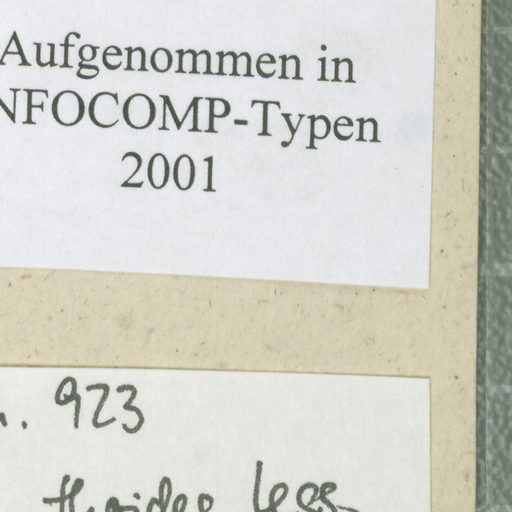 Aufgenommen in
NFOCOMP-Typen
2001
. 923
Less.